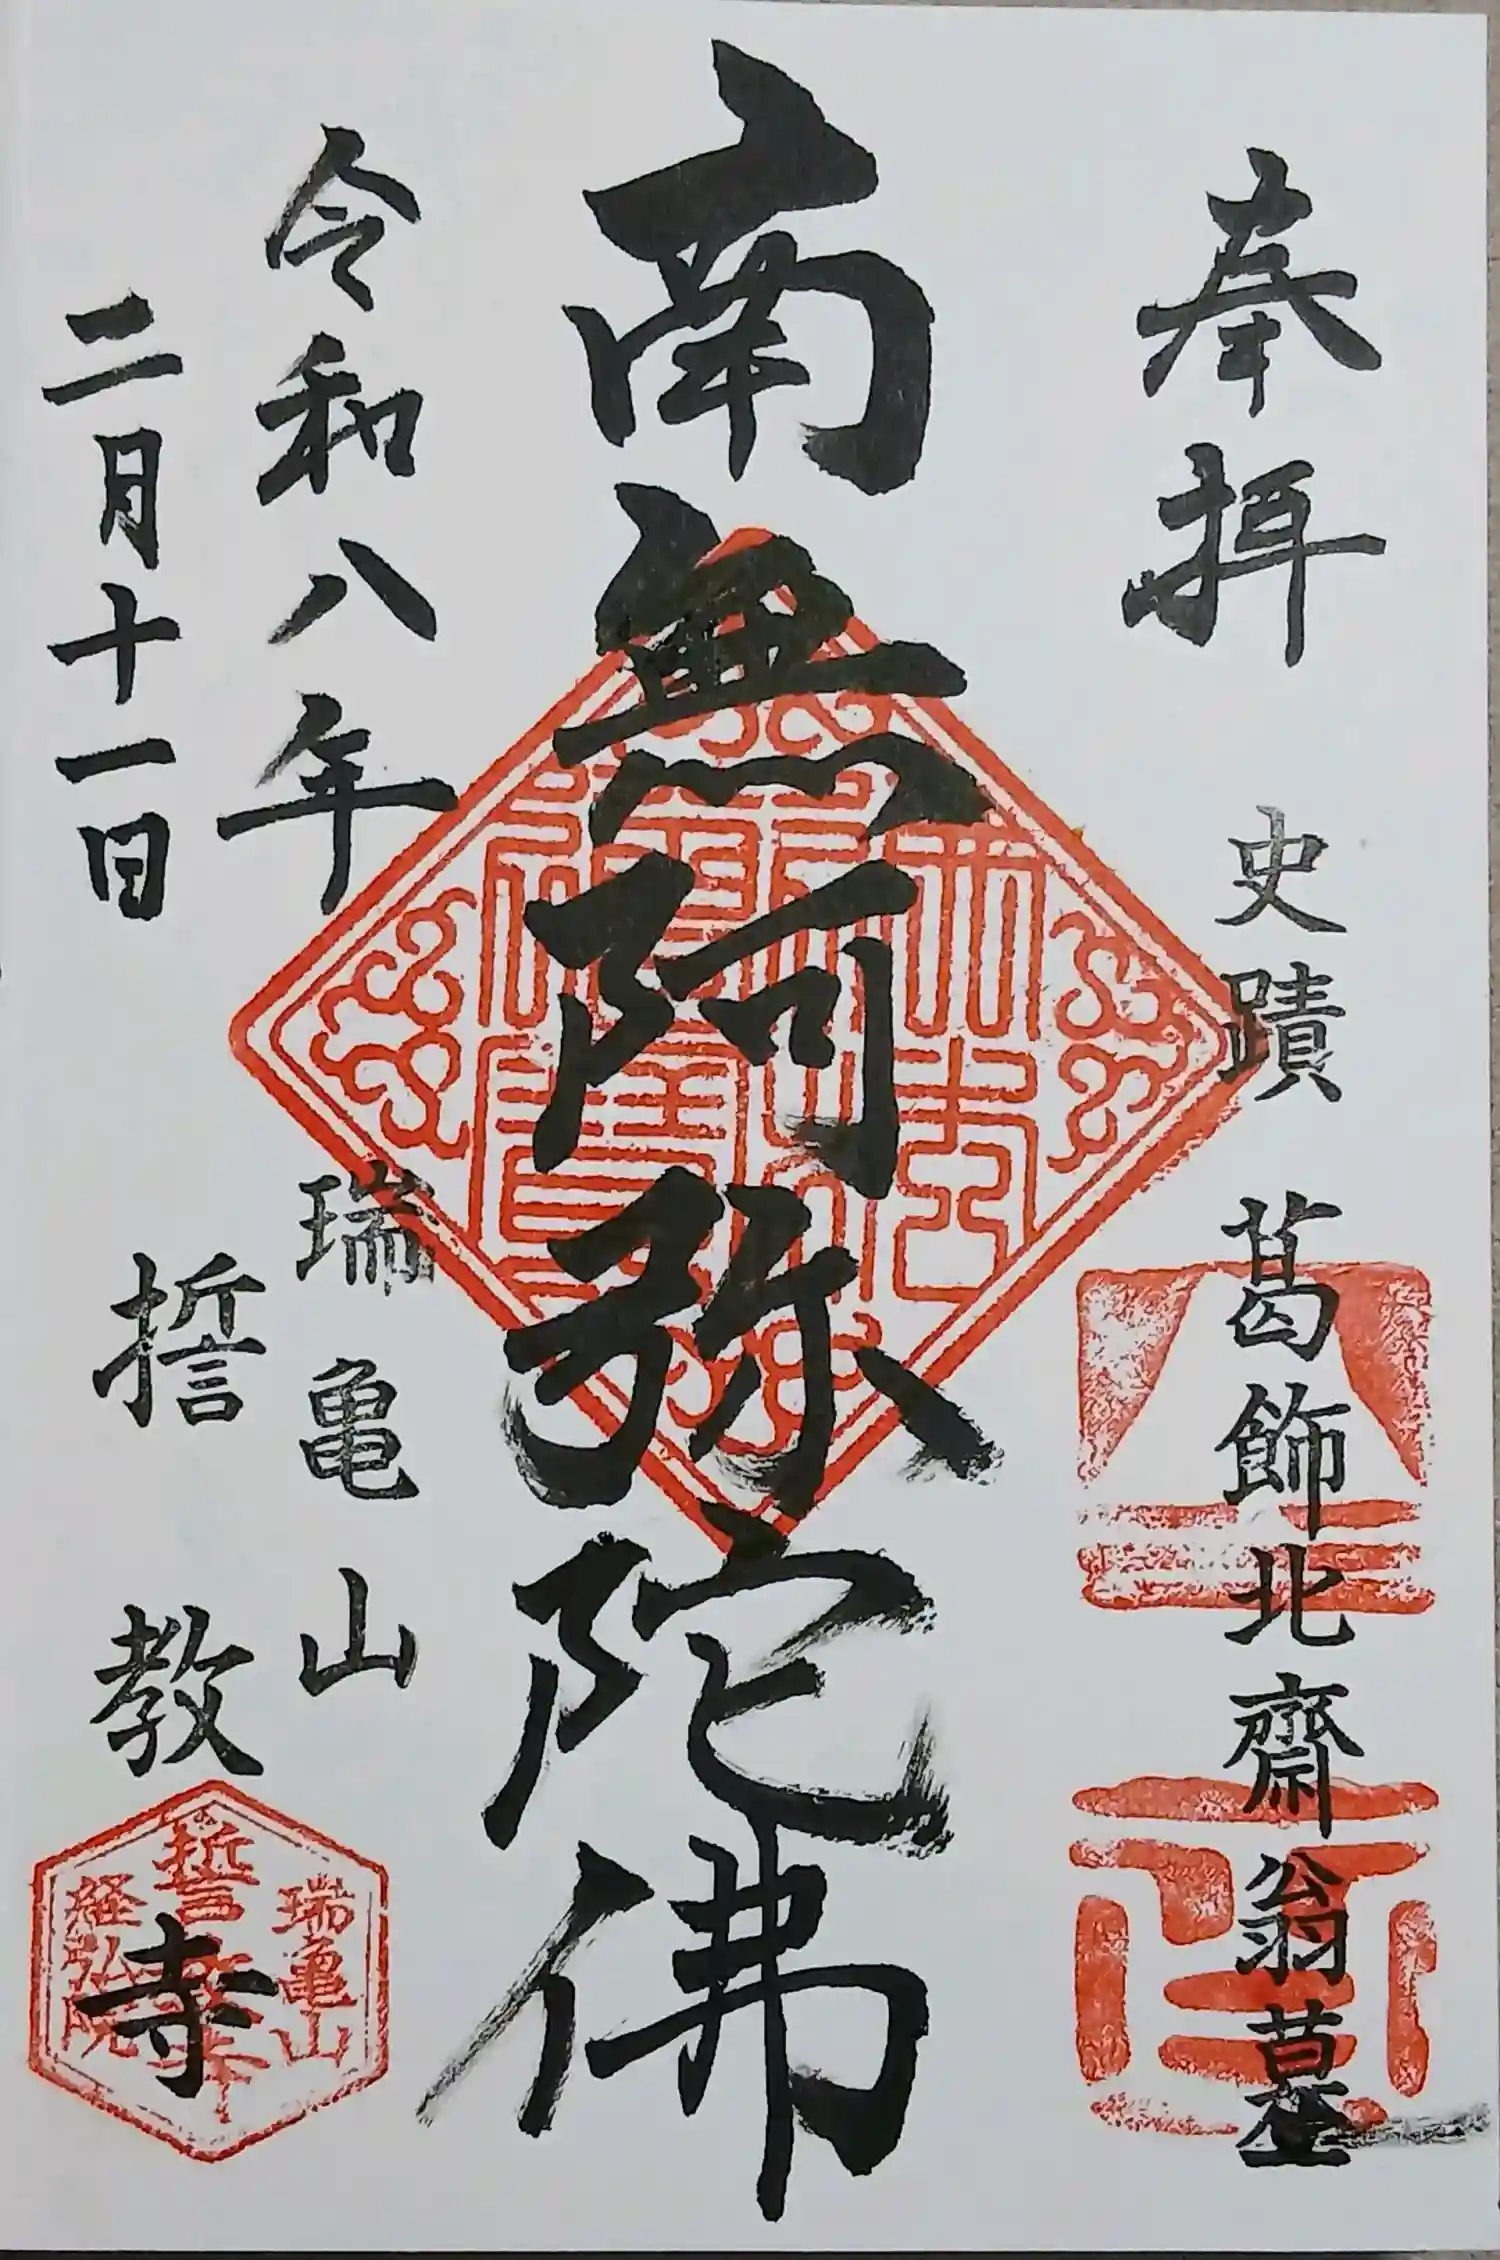 奉拝
史蹟 葛飾北齋翁墓
南無阿弥陀佛
令和八年
二月十一日
瑞亀山
誓教寺
瑞亀山
誓教寺
経弘院